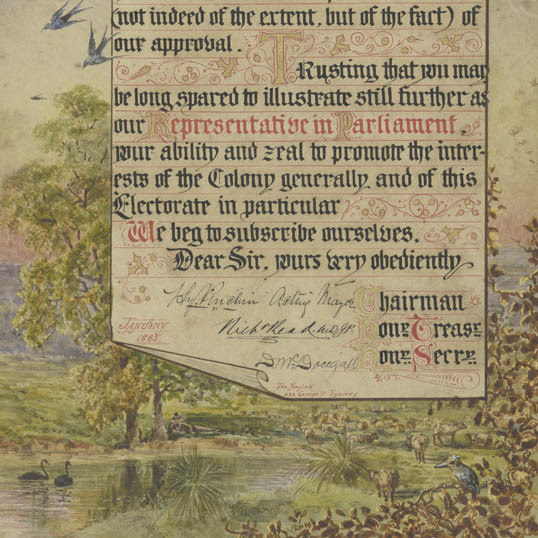 (not indeed of the extent, but of the fact) of
our approval.
Trusting that you may
be long spared to illustrate still further as
our Representative in Parliament,
your ability and zeal to promote the inter-
ests of the Colony generally and of this
Electorate in particular
We beg to subscribe ourselves.
Dear Sir, yours very obediently
Acting Mayor Chairman
Hony Treasr
January
1885
McDougall Hony Secry
George St Sydney